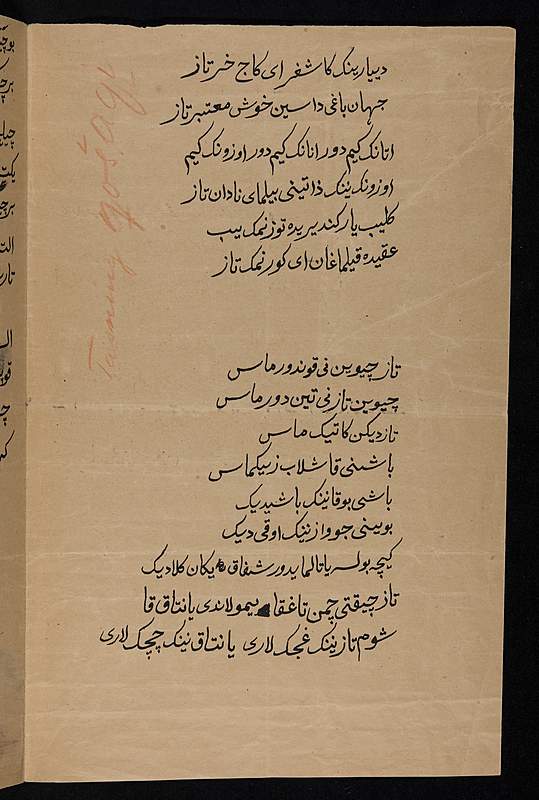 دییارینک کاشغر ای کاج خر تاز
جهان باغی داسین خوش معتبر تاز
اتانک کیم دور انانک کیم دور اوزونک کیم
اوزونک ینک ذاتینی بیلمای نادان تاز
کلیب یارکندیریده توز نمک ییب
عقیده قیلماغان ای کور نمک تاز
تاز چیوین نی قوندورماس
چیوین تازنی تین دورماس
تاز دیکن کاتیک ماس
باشنی قاشلاب زیکماس
باشی بوقانینک باشیدیک
بوینی جووازنینک اوقی دیک
کیچه بولسه یاتالمایدور شفاق یکان کلادیک
تاز چیقتی چمن تاغقا یمولاندی یانتاق قا
شوم تازنینک غجک لاری یانتاق نینک چچک لاری
Tazning qošaγï